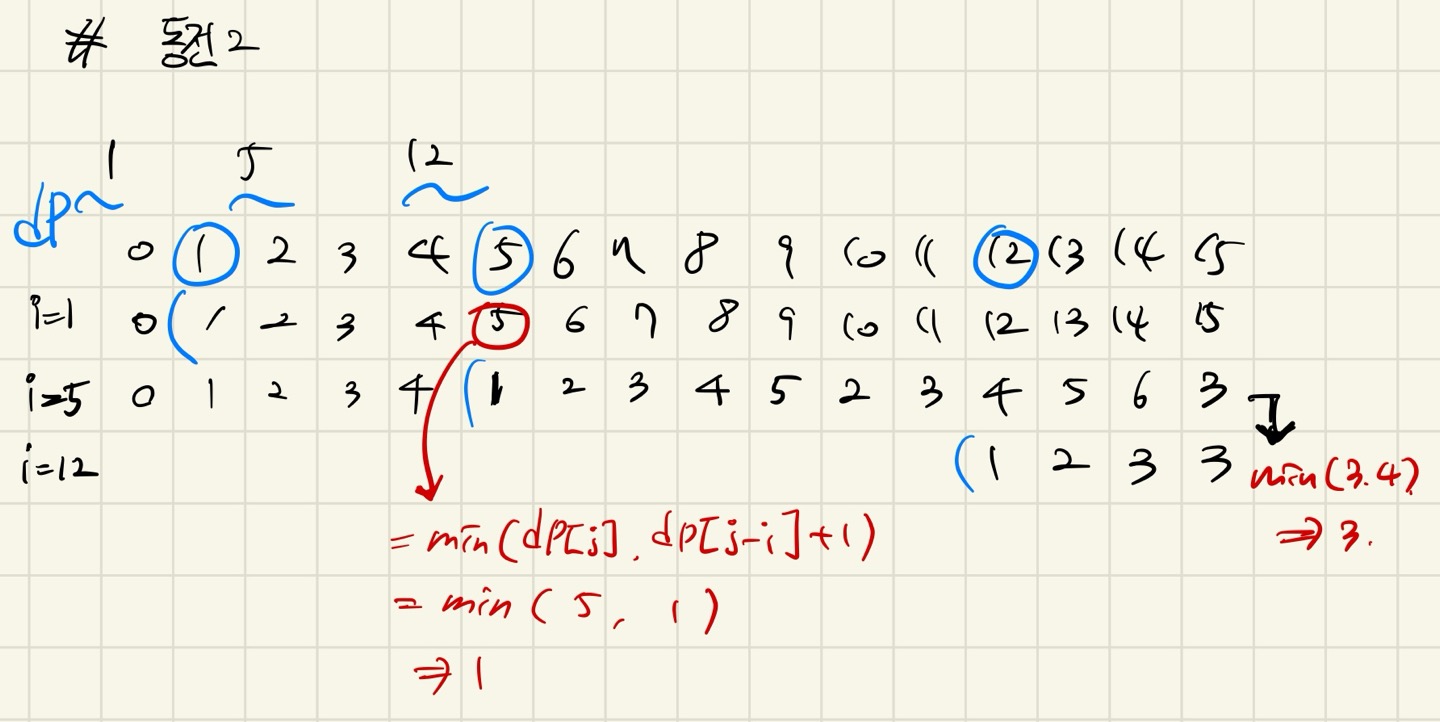 # 동전2
1 5 12
dp
0 1 2 3 4 5 6 7 8 9 10 11 12 13 14 15
i=1 0 1 2 3 4 5 6 7 8 9 10 11 12 13 14 15
i=5 0 1 2 3 4 1 2 3 4 5 2 3 4 5 6 3
i=12 1 2 3 3 min(3.4)
⇒ 3.
= min(dp[j], dp[j-i]+1)
= min( 5, 1 )
⇒ 1